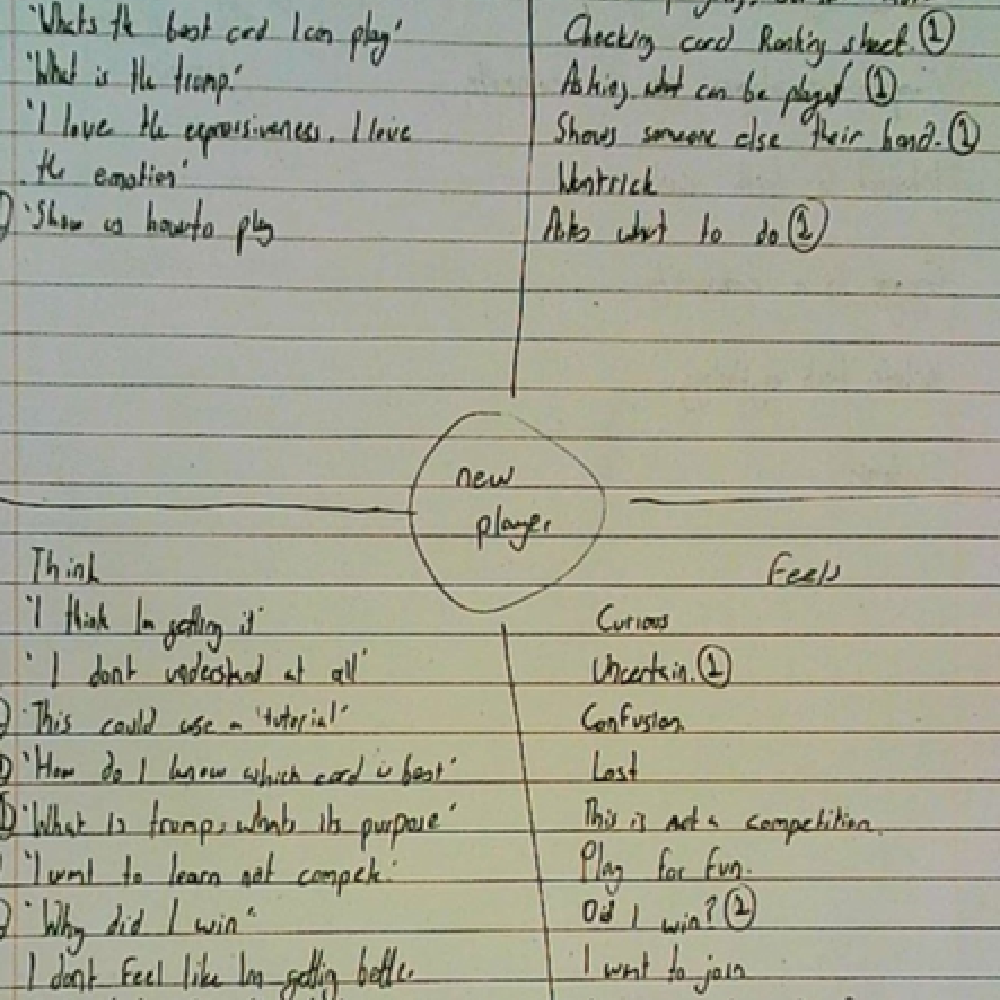 'Whats th best crd I can play'
'What is the tromp.'
'I love the expressiveness. I love
the emotion'
'Show us how to play
Checking card Ranking sheet. ①
Asking what can be played ①
Shows someone else their hand. ①
Wontrick
Asks what to do ②
new
player
Think
'I think Im getting it'
'I dont understand at all'
'This could use a 'tutorial'
'How do I know which card is best'
'What is tromp, whats its purpose'
'I want to learn not compete.'
'Why did I win'
I dont Feel like Im getting bette.
Feels
Curious
Uncertain. ①
Confusion
Lost
This is not a competition.
Play for fun.
Did I win? ②
I want to join